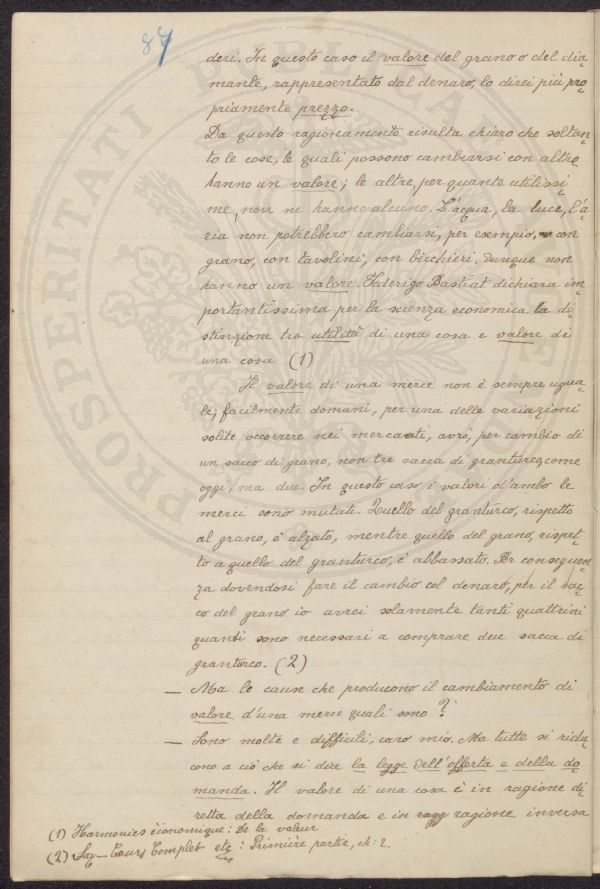 87
deri. In questo caso il valore del grano o del dia-
mante, rappresentato dal denaro, lo direi più pro-
priamente prezzo.
Da questo ragionamento risulta chiaro che soltan-
to le cose, le quali possono cambiarsi con altre
hanno un valore; le altre, per quante utilissi-
me, non ne hanno alcuno. L'acqua, la luce, l'a-
ria non potrebbero cambiarsi, per esempio, con
grano, con tavolini, con bicchieri. Dunque non
hanno un valore. Federigo Bastiat dichiara im-
portantissima per la scienza economica la di-
stinzione tra utilità di una cosa e valore di
una cosa (1)
Il valore di una merce non è sempre ugua-
le; facilmente domani, per una delle variazioni
solite occorrere nei mercati, avrò, per cambio di
un sacco di grano, non tre sacca di granturco, come
oggi, ma due. In questo caso i valori d'ambo le
merci sono mutati. Quello del granturco, rispetto
al grano, è alzato, mentre quello del grano, rispet-
to a quello del granturco, è abbassato. Per conseguen-
za dovendosi fare il cambio col denaro, per il sac-
co del grano io avrei solamente tanti quattrini
quanti sono necessari a comprare due sacca di
granturco. (2)
— Ma le cause che producono il cambiamento di
valore d'una merce quali sono?
— Sono molte e difficili, caro mio. Ma tutte si ridu-
cono a ciò che si dice la legge dell'offerta e della do-
manda. Il valore di una cosa è in ragione di-
retta della domanda e in ragione inversa
(1) Harmonies économique: De la valeur
(2) Say - Cours Complet etc: Première partie, ch: 2.
PROSPERITATI